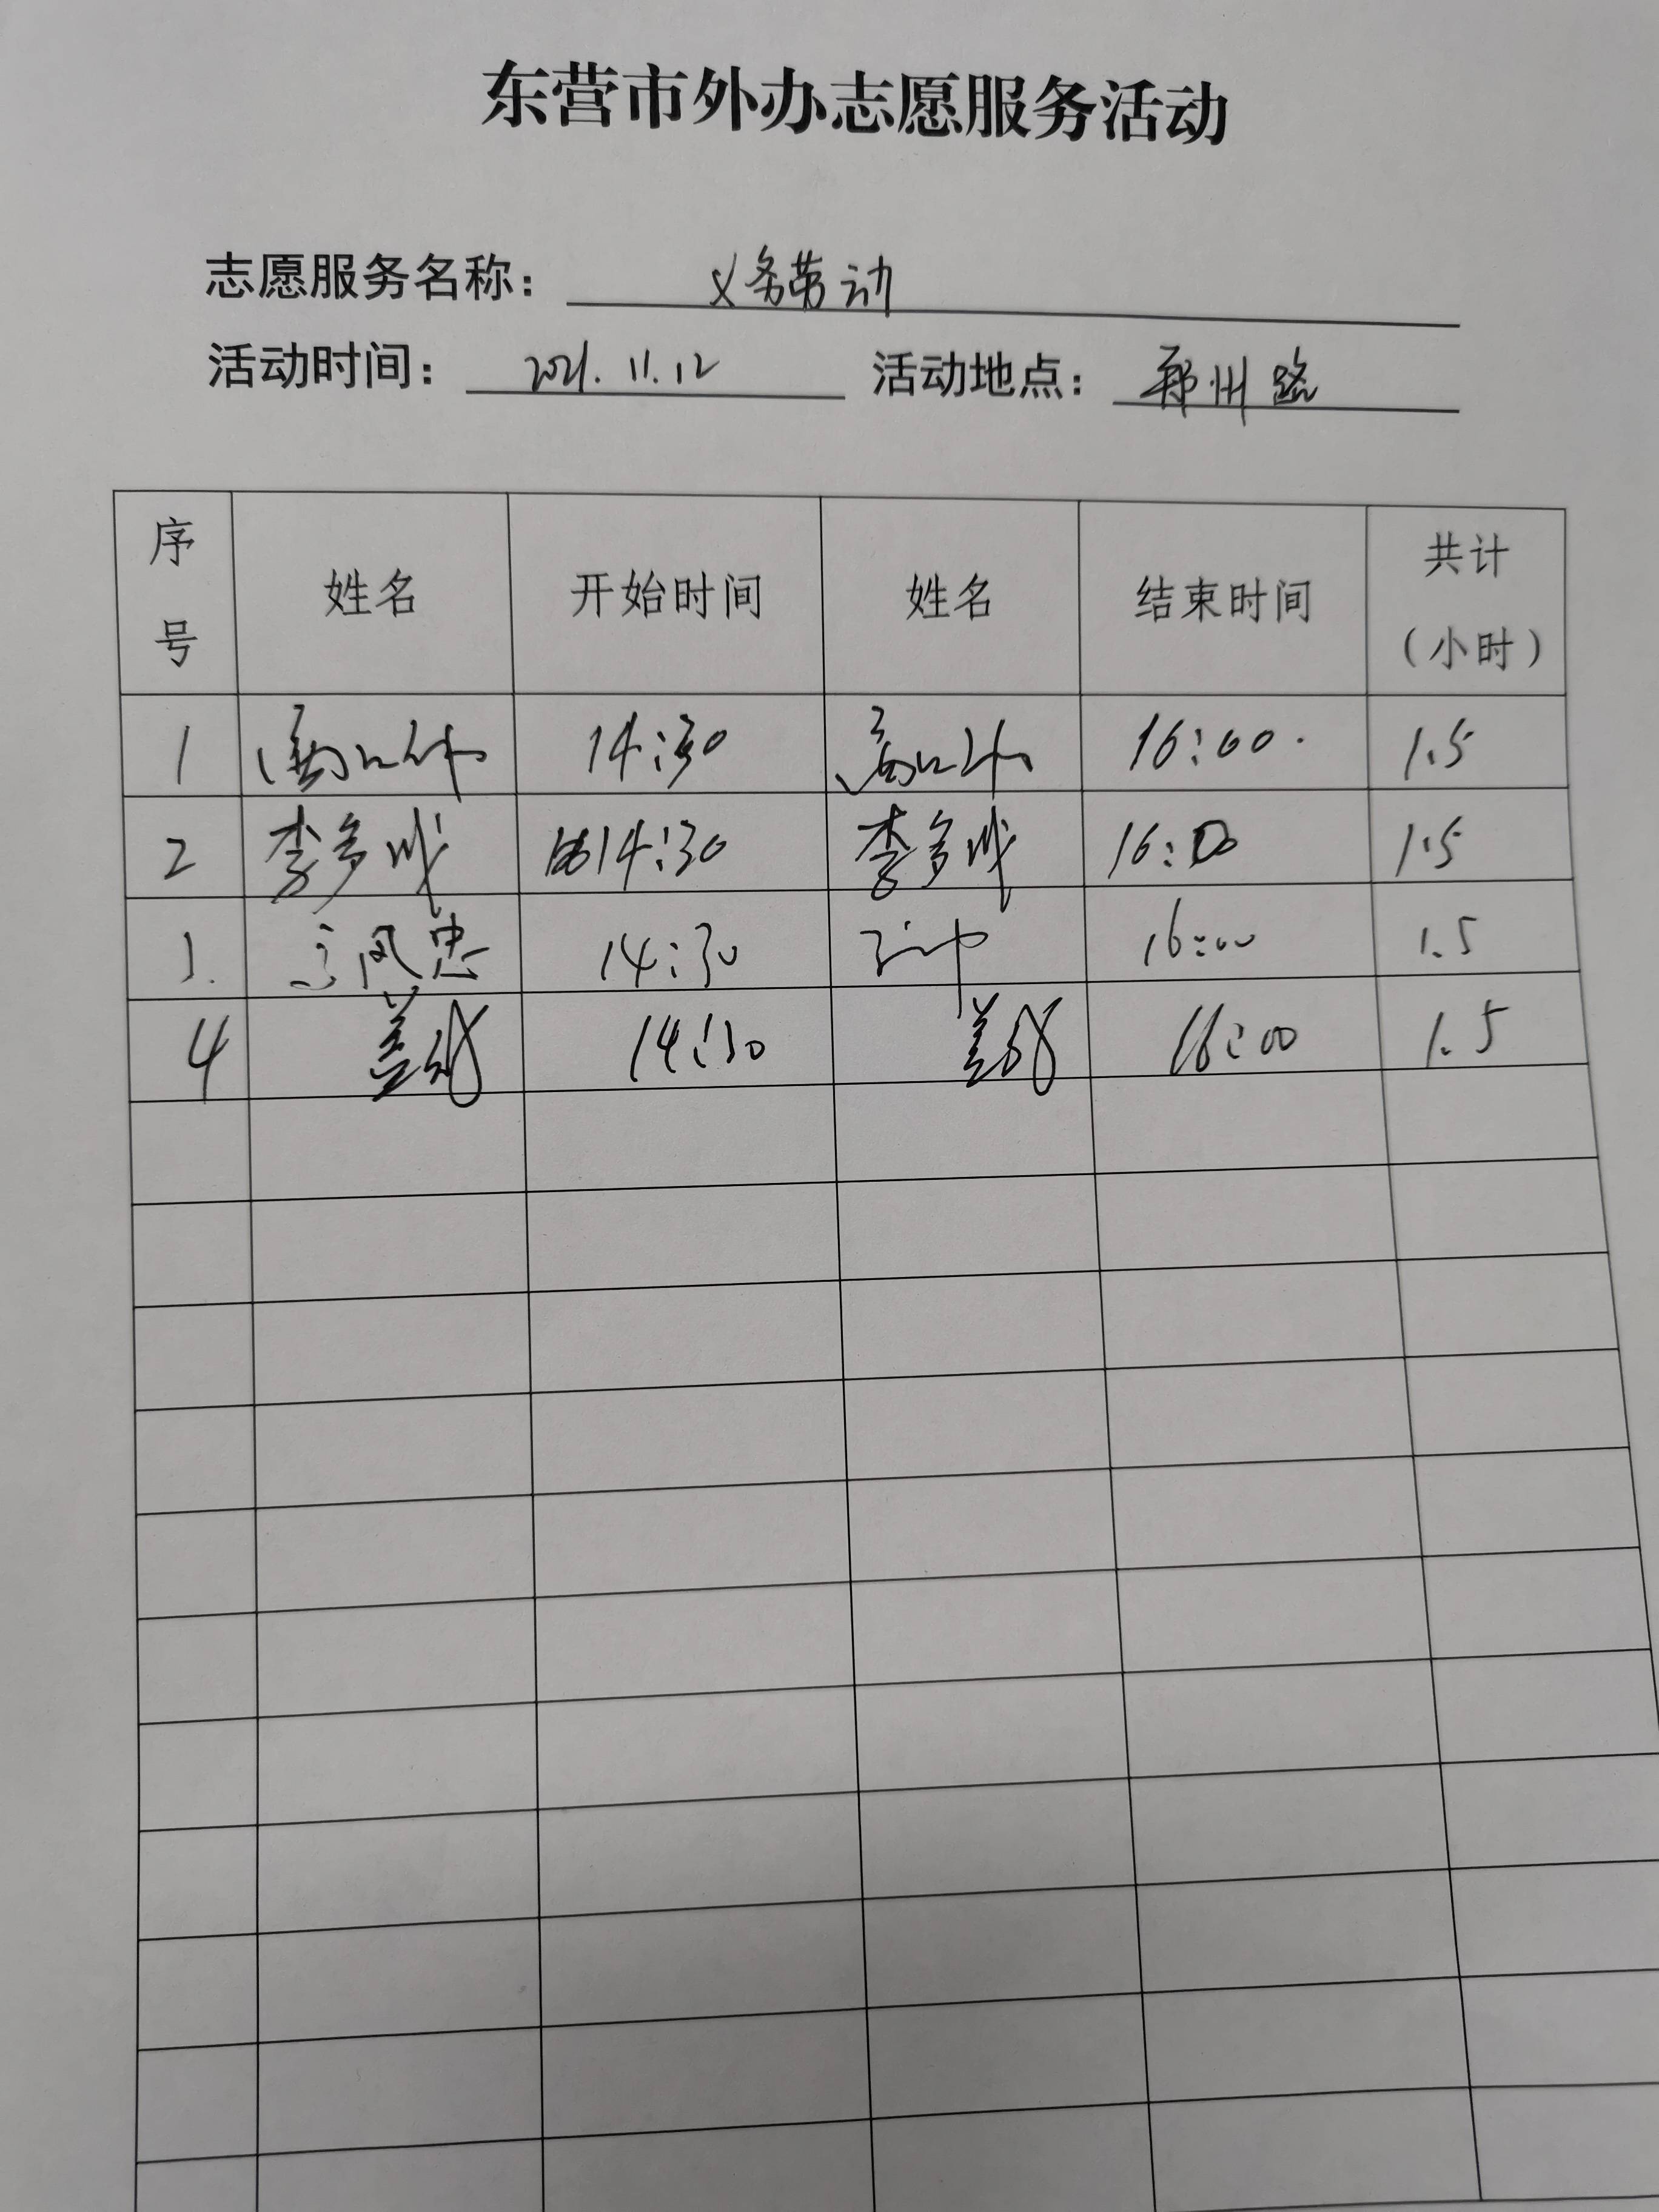 东营市外办志愿服务活动
志愿服务名称： 义务劳动
活动时间： 2021.11.12 活动地点： 郑州路
序号 姓名 开始时间 姓名 结束时间 共计（小时）
1 14:30 16:00 1.5
2 李多成 14:30 李多成 16:00 1.5
3. 14:30 16:00 1.5
4 14:30 16:00 1.5